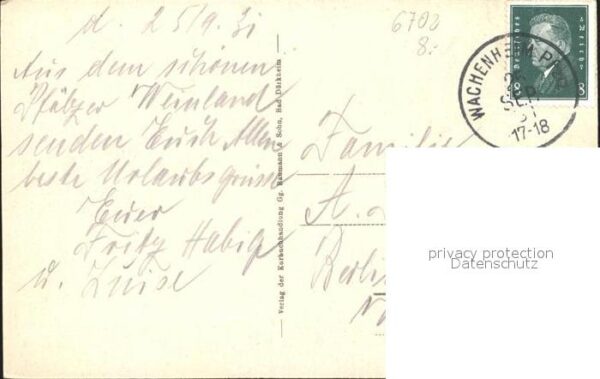 d. 25/9.31
Aus dem schönen
Pfälzer Weinland
senden Euch Allen
beste Urlaubsgrüsse
Euer
Fritz Habig
u. Luise
Verlag der Kurbuchhandlung Gg. & Sohn, Bad Dürkheim
6702
8.-
Deutsches Reich
8 8
WACHENHEIM
SEP.
31
17-18
Familie
A.
Berlin
privacy protection
Datenschutz